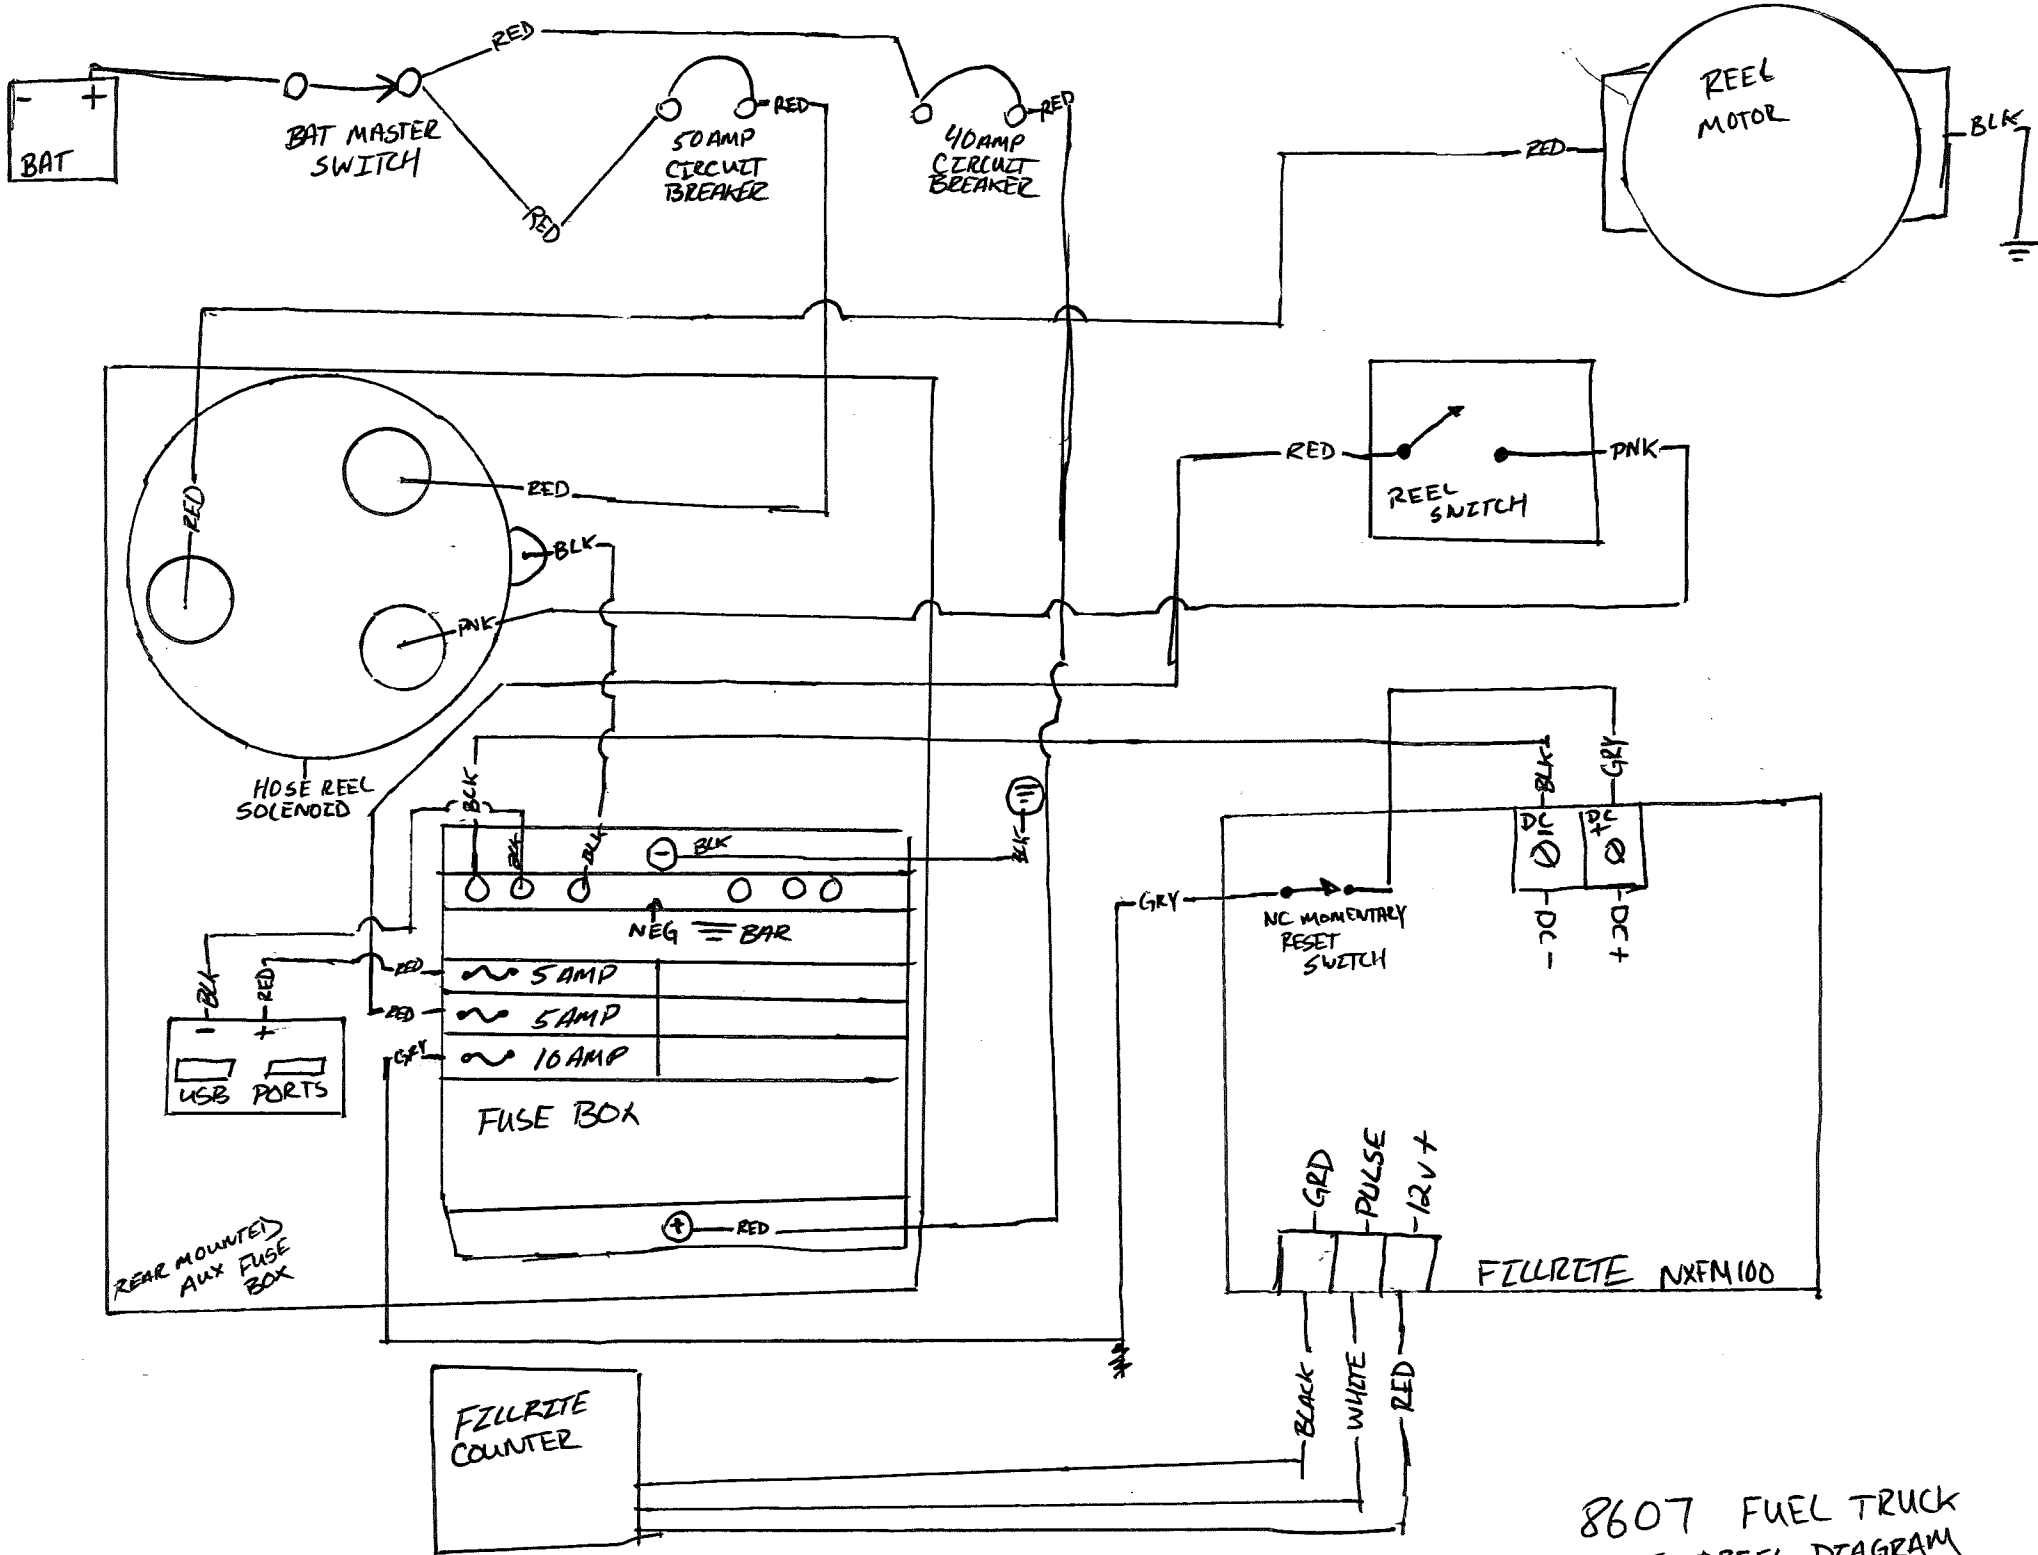 - +
BAT
BAT MASTER
SWITCH
RED
RED
RED
50 AMP
CIRCUIT
BREAKER
RED
40 AMP
CIRCUIT
BREAKER
REEL
MOTOR
RED
BLK
RED
RED
BLK
PNK
HOSE REEL
SOLENOID
RED
PNK
REEL
SWITCH
BLK
BLK
BLK
- BLK
BLK
NEG BAR
RED
5 AMP
RED
5 AMP
GRY
10 AMP
FUSE BOX
+ RED
BLK
RED
- +
USB PORTS
REAR MOUNTED
AUX FUSE
BOX
BLK
GRY
DC -
DC +
DC -
DC +
GRY
NC MOMENTARY
RESET
SWITCH
GRD
PULSE
12V +
FILLRITE NXFM100
BLACK
WHITE
RED
FILLRITE
COUNTER
8607 FUEL TRUCK
REEL DIAGRAM